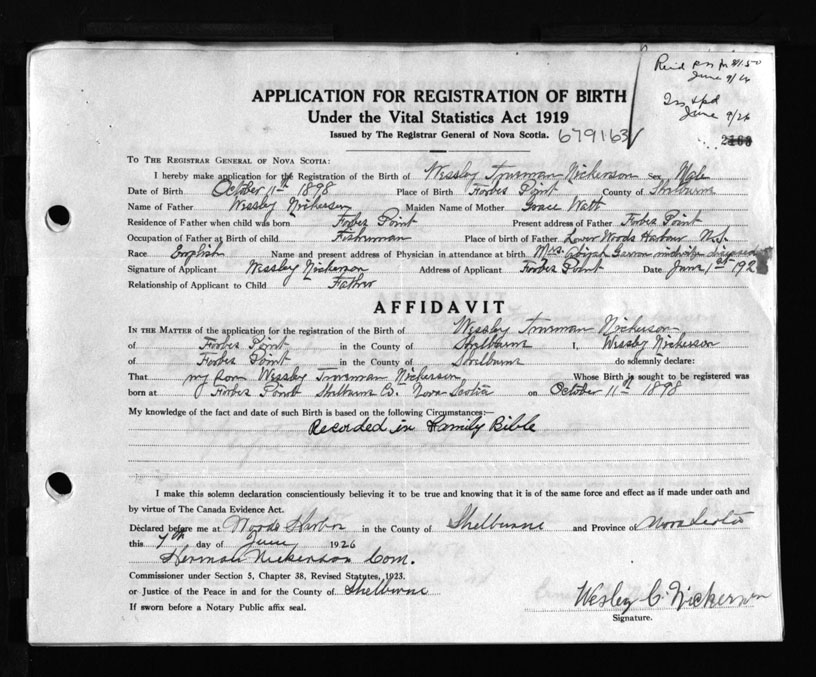 Rec'd June 9/26
June 9/26
APPLICATION FOR REGISTRATION OF BIRTH
Under the Vital Statistics Act 1919
Issued by The Registrar General of Nova Scotia. 679163
2163
TO THE REGISTRAR GENERAL OF NOVA SCOTIA:
I hereby make application for the Registration of the Birth of Wessley Truman Nickerson Sex Male
Date of Birth October 11th 1898 Place of Birth Forbes Point County of Shelburne
Name of Father Wessley Nickerson Maiden Name of Mother Grace Watt
Residence of Father when child was born Forbes Point Present address of Father Forbes Point
Occupation of Father at Birth of child Fisherman Place of birth of Father Lower Woods Harbour N.S.
Race English Name and present address of Physician in attendance at birth Mrs. midwife deceased
Signature of Applicant Wessley Nickerson Address of Applicant Forbes Point Date June 1st 192
Relationship of Applicant to Child Father
AFFIDAVIT
IN THE MATTER of the application for the registration of the Birth of Wessley Truman Nickerson
of Forbes Point in the County of Shelburne I, Wessley Nickerson
of Forbes Point in the County of Shelburne do solemnly declare:
That my son Wessley Truman Nickerson Whose Birth is sought to be registered was
born at Forbes Point Shelburne Co. Nova Scotia on October 11th 1898
My knowledge of the fact and date of such Birth is based on the following Circumstances:—
Recorded in Family Bible
I make this solemn declaration conscientiously believing it to be true and knowing that it is of the same force and effect as if made under oath and
by virtue of The Canada Evidence Act.
Declared before me at Woods Harbor in the County of Shelburne and Province of Nova Scotia
this 7th day of June 1926
Herman Nickerson Com.
Commissioner under Section 5, Chapter 38, Revised Statutes, 1923.
or Justice of the Peace in and for the County of Shelburne
If sworn before a Notary Public affix seal.
Wesley C. Nickerson
Signature.